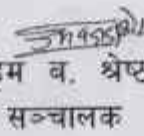 म ब. श्रेष्ठ
सञ्चालक